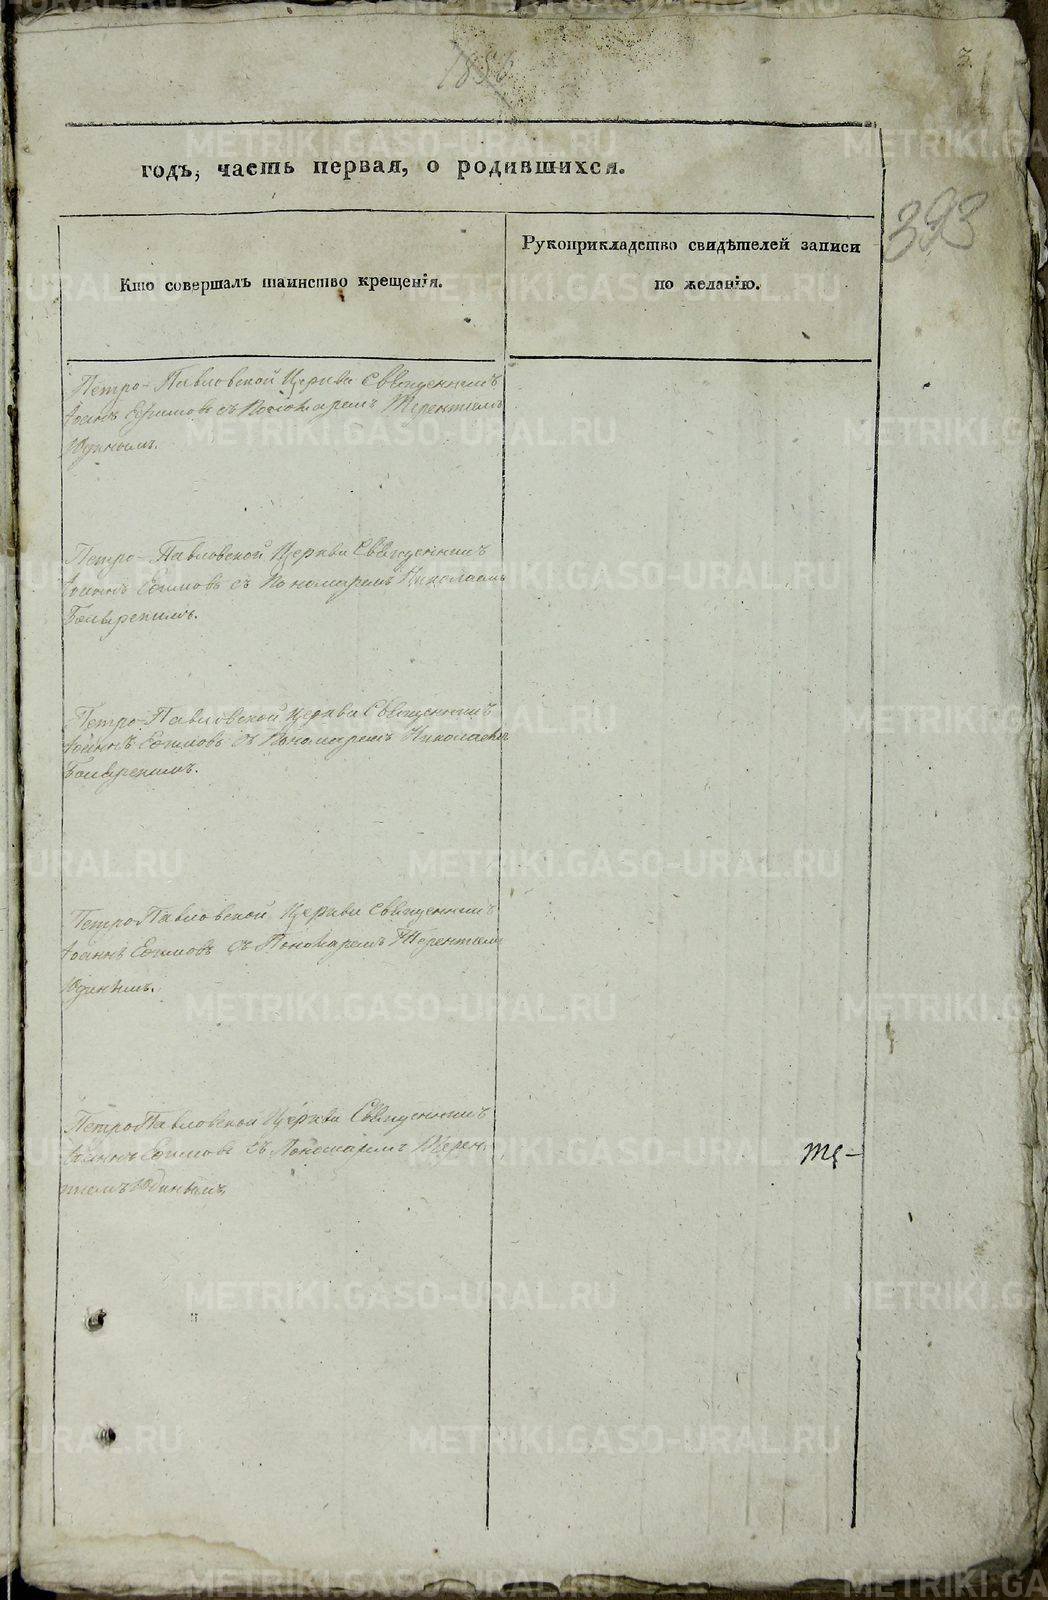 1856
3
годъ, часть первая, о родившихся.
393
Кто совершалъ таинство крещенія.
Рукоприкладство свидѣтелей записи
по желанію.
Петро-Павловской Церкви Священникъ
Іоаннъ Ефимовъ съ Пономаремъ Терентіемъ
Юдинымъ.
Петро-Павловской Церкви Священникъ
Іоаннъ Ефимовъ съ Пономаремъ Николаемъ
Петро-Павловской Церкви Священникъ
Іоаннъ Ефимовъ съ Пономаремъ Николаемъ
Петро-Павловской Церкви Священникъ
Іоаннъ Ефимовъ съ Пономаремъ Терентіемъ
Юдинымъ.
Петро-Павловской Церкви Священникъ
Іоаннъ Ефимовъ съ Пономаремъ Терен-
тіемъ Юдинымъ.
METRIKI.GASO-URAL.RU